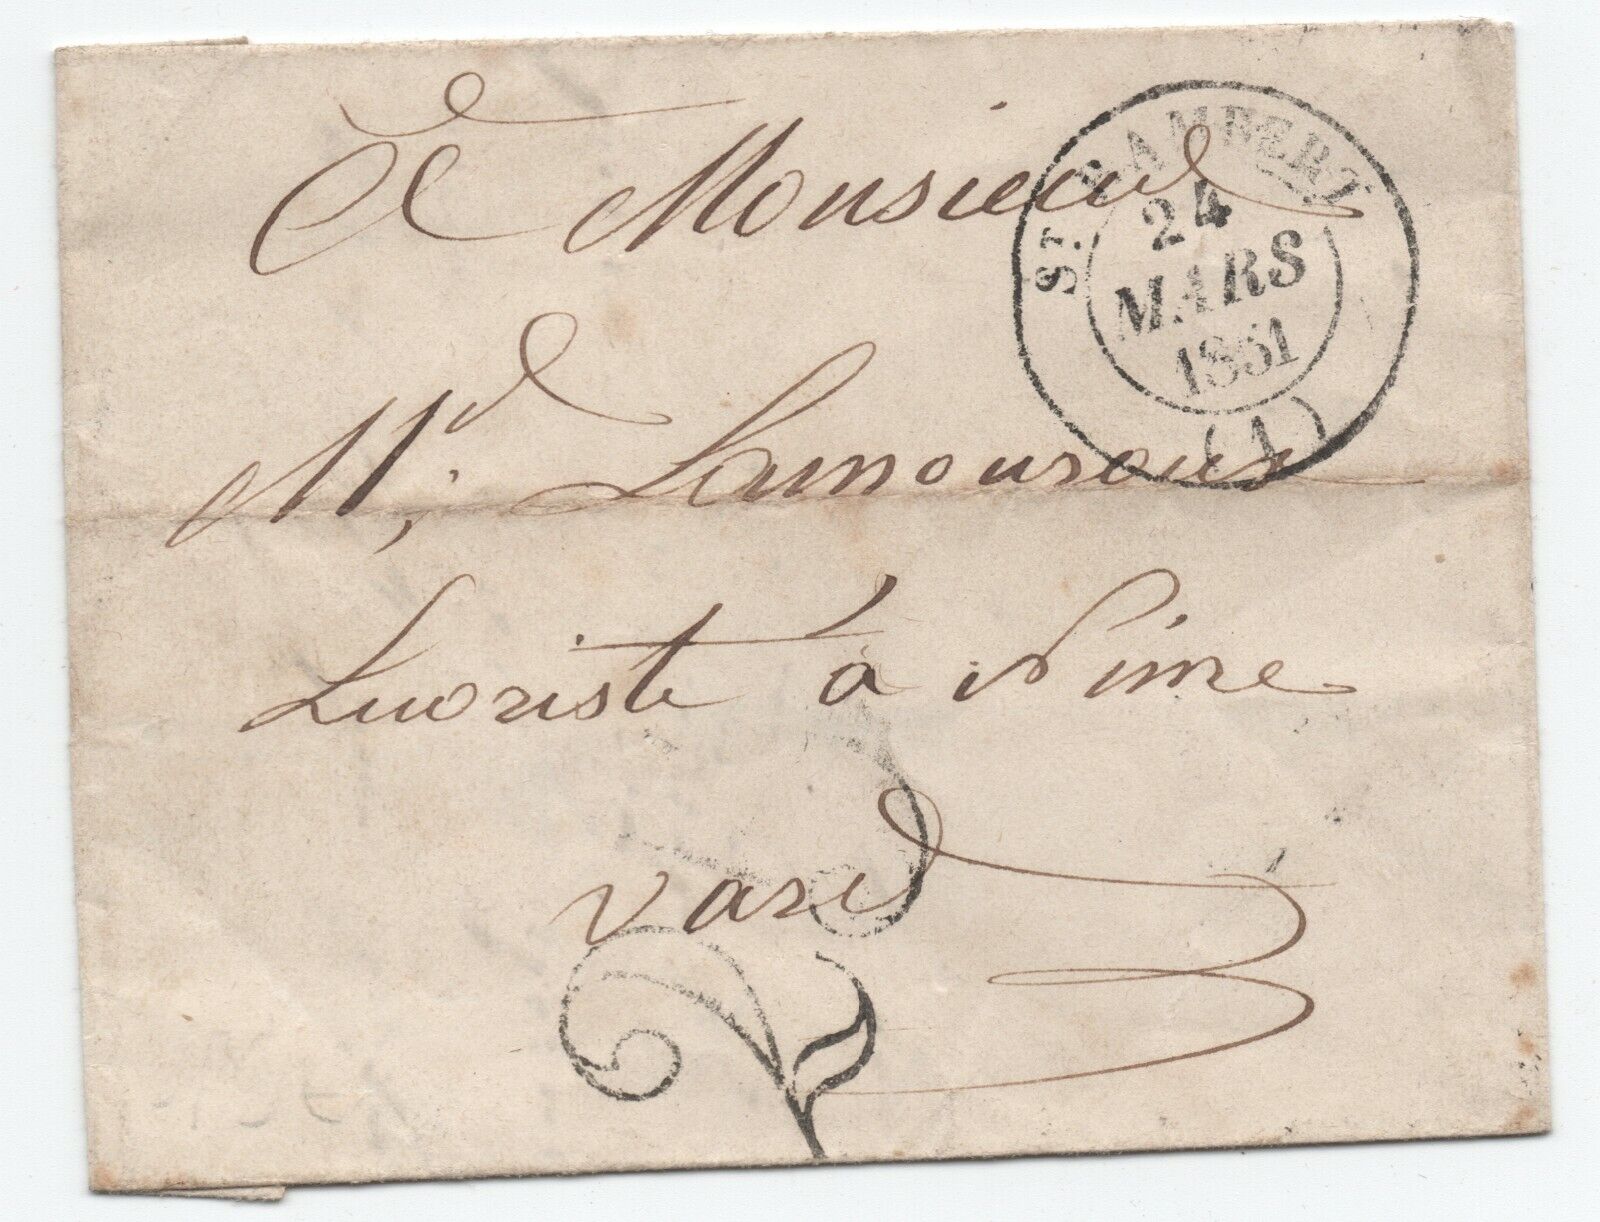 A Monsieur
Md, Lamouroux
Luoriste à Nime
Gard
ST RAMBERT
24
MARS
1851
(1)